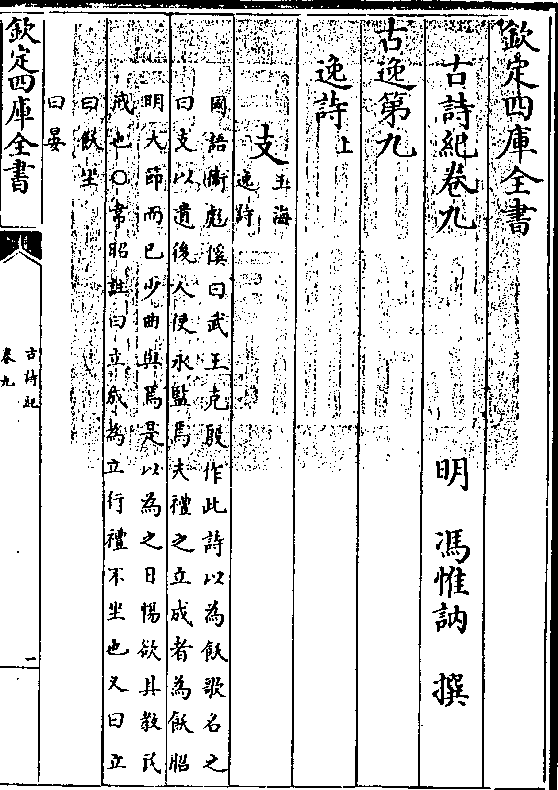 欽定四庫全書
古詩紀卷九
明 馮惟訥 撰
古逸第九
逸詩上
支玉海逸詩
國語衛彪傒曰武王克殷作此詩以為飫歌名之
曰支以遺後人使永監焉夫禮之立成者為飫昭
明大節而已少曲與焉是以為之日惕欲其教民
戒也○韋昭註曰立成為立行禮不坐也又曰立
曰飫坐
曰宴
欽定四庫全書
古詩紀
卷九
一